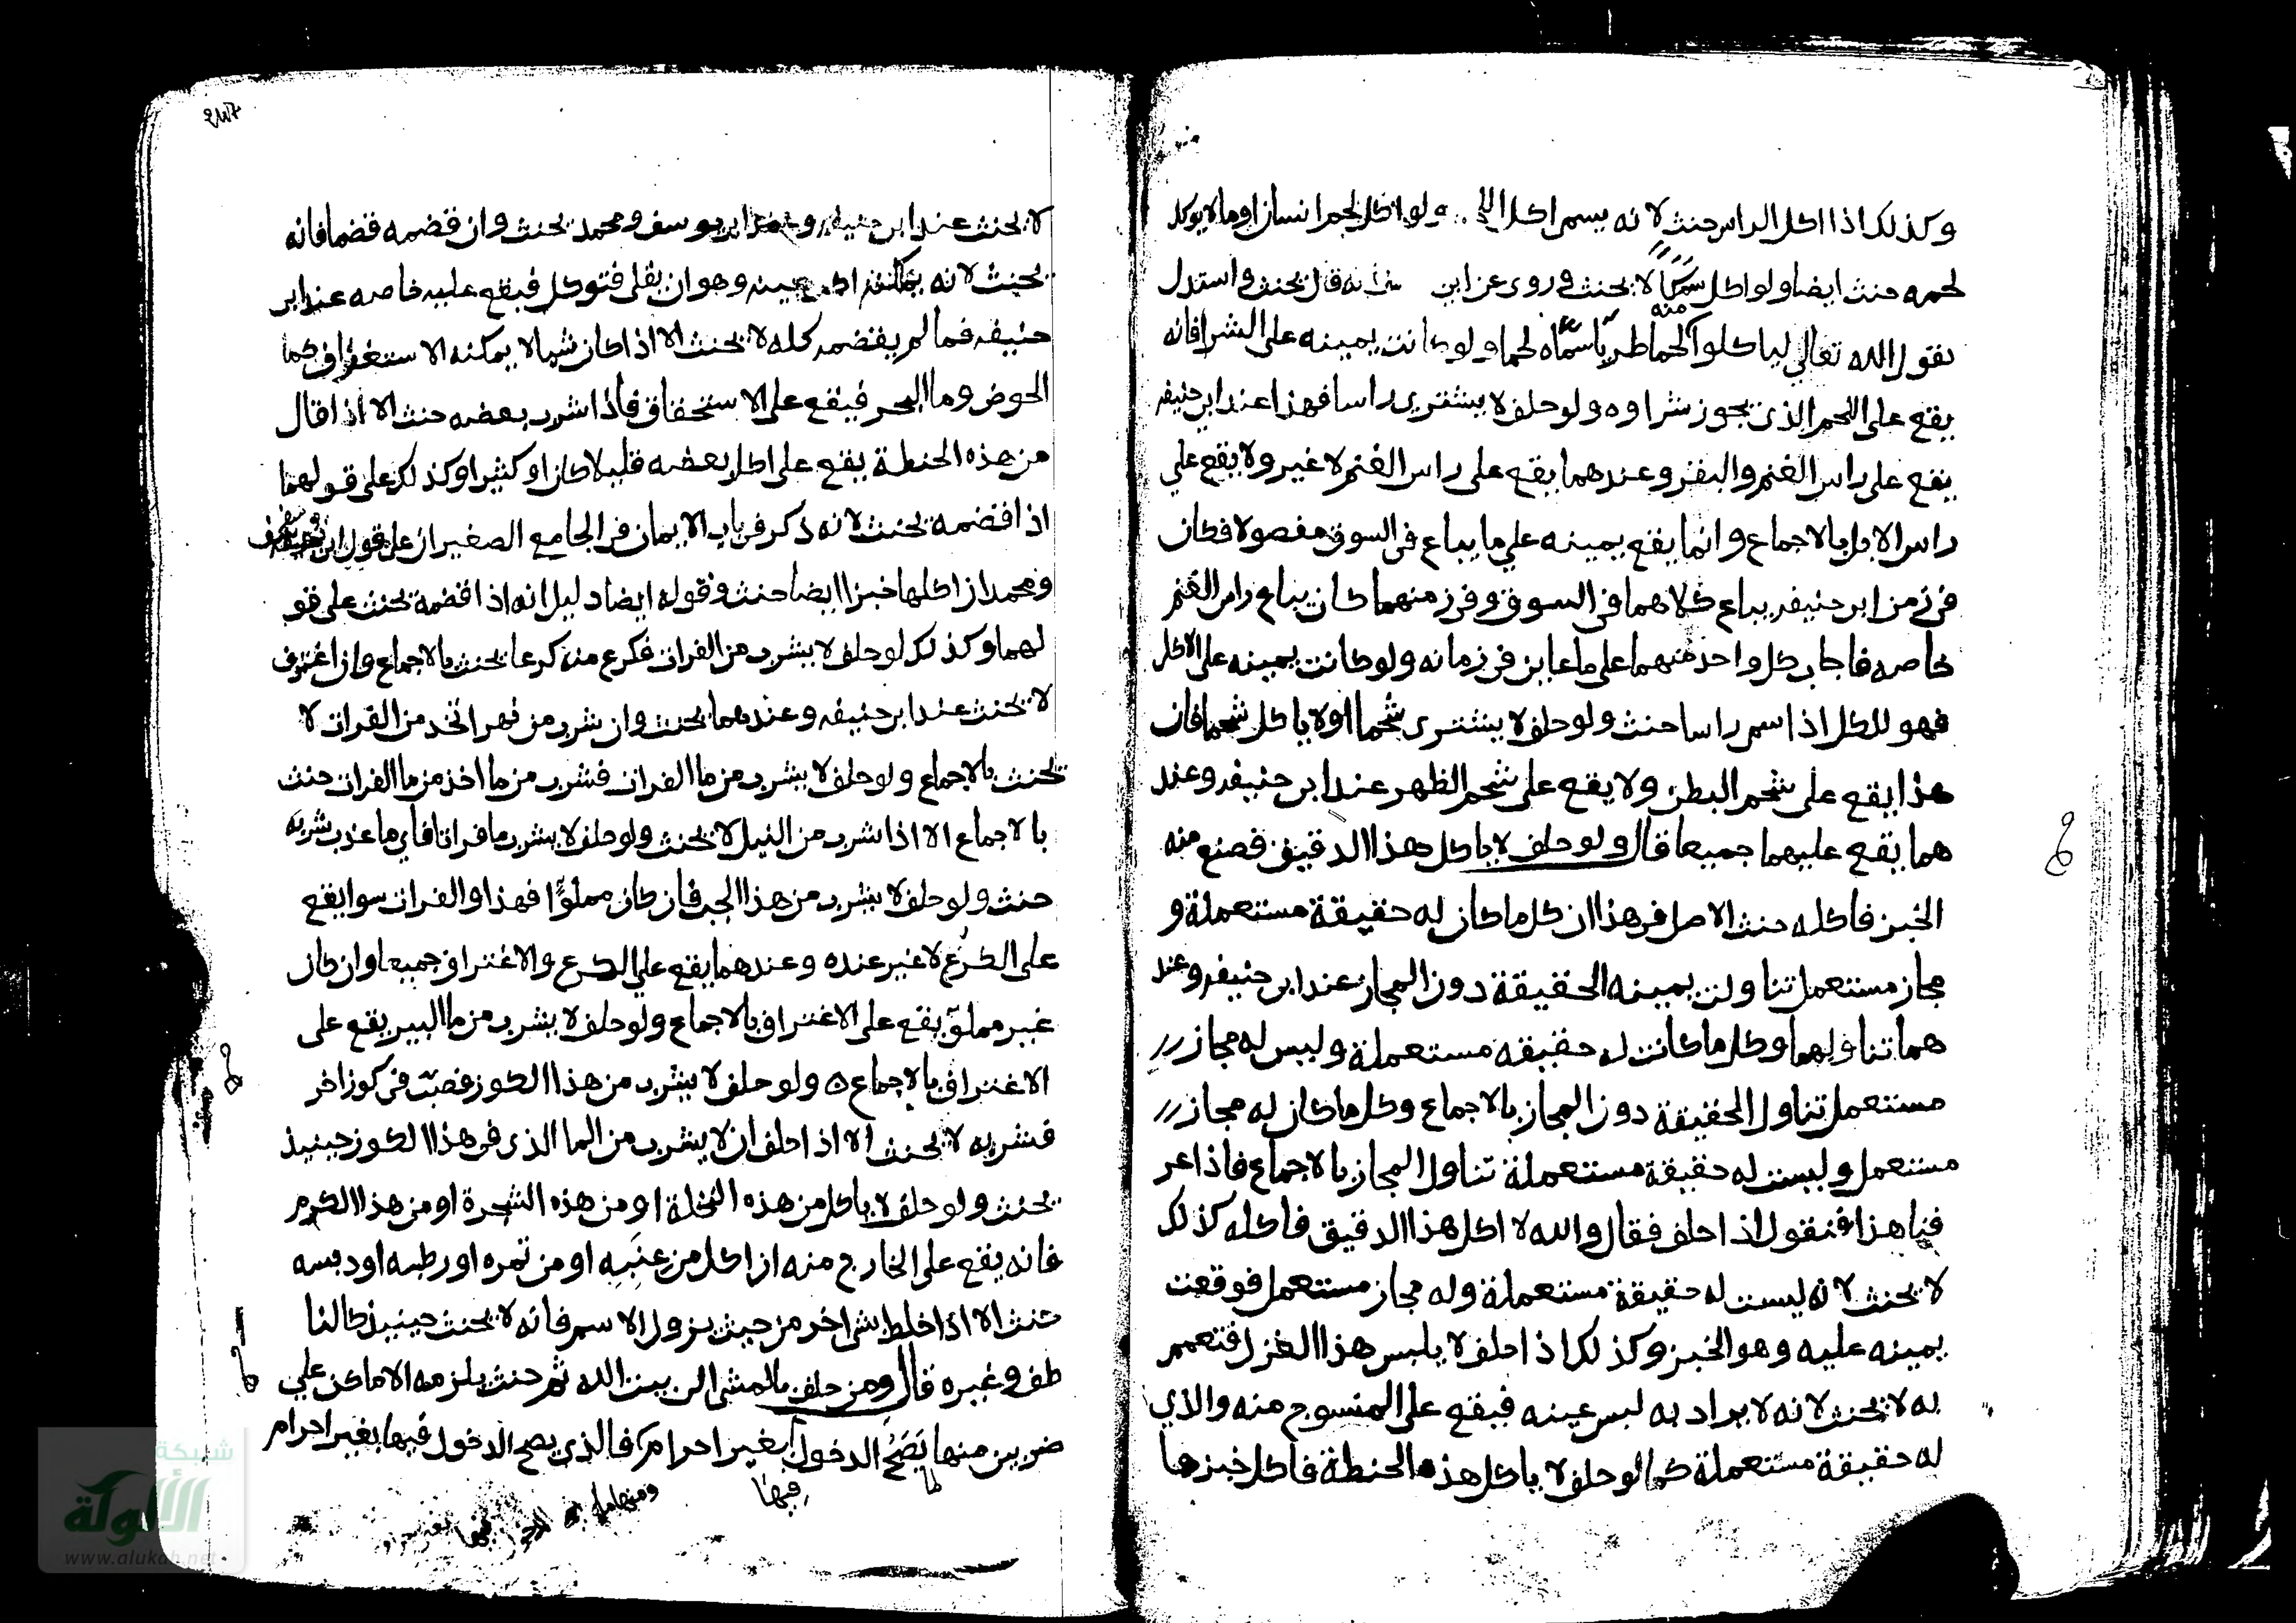 وكذلك اذا اكل الراس حنث لانه يسمى اكل ولو اكل لحم انسان او ما لا يوكل
لحمه حنث ايضا ولو اكل سمكا لا يحنث وروى عن ابن انه قال يحنث واستدل
بقول الله تعالى لياكلوا منه لحما طريا سماه لحما ولو كانت يمينه على الشرا فانه
يقع على اللحم الذى يجوز شراوه ولو حلف لا يشترى راسا فهذا عند ابى حنيفه
يقع على راس الغنم والبقر وعندهما يقع على راس الغنم لا غير ولا يقع على
راس الابل بالاجماع وانما يقع يمينه على ما يباع فى السوق مفصولا فكان
فى زمن ابى حنيفه يباع كلاهما فى السوق وفى زمنهما كان يباع راس الغنم
خاصه فاجاب كل واحد منهما على ما عاين فى زمانه ولو كانت يمينه على الاكل
فهو للكل اذا سمى راسا حنث ولو حلف لا يشترى شحما او لا ياكل شحما فان
هذا يقع على شحم البطن ولا يقع على شحم الظهر عند ابى حنيفه وعند
هما يقع عليهما جميعا قال ولو حلف لا ياكل هذا الدقيق فصنع منه
الخبز فاكله حنث الاصل فى هذا ان كل ما كان له حقيقة مستعملة و
مجاز مستعمل تناولت يمينه الحقيقة دون المجاز عند ابى حنيفه وعند
هما تناولهما وكل ما كانت له حقيقه مستعملة وليس له مجاز
مستعمل تناول الحقيقة دون المجاز بالاجماع وكل ما كان له مجاز
مستعمل وليست له حقيقة مستعملة تناول المجاز بالاجماع فاذا عر
فنا هذا فنقول اذا حلف فقال والله لا اكل هذا الدقيق فاكله كذلك
لا يحنث لانه ليست له حقيقة مستعملة وله مجاز مستعمل فوقعت
يمينه عليه وهو الخبز وكذلك اذا حلف لا يلبس هذا الغزل فتعمم
به لا يحنث لانه لا يراد به لبس عينه فيقع على المنسوج منه والذي
له حقيقة مستعملة كما لو حلف لا ياكل هذه الحنطة فاكل خبزها
لا يحنث عند ابى حنيفه وعند ابى يوسف ومحمد يحنث وان قضمه قضما فانه
يحنث لانه يمكنه اكل عينه وهو ان يقلى فتوكل فيقع عليه خاصه عند ابى
حنيفه فما لم يقضمه كله لا يحنث الا اذا كان شيا لا يمكنه الاستغراق كما
الحوض وما البحر فيقع على الاستحقاق فاذا شرب بعضه حنث الا اذا قال
من هذه الحنطة يقع على اكل بعضه قليلا كان او كثيرا وكذلك على قولهما
اذا قضمه يحنث لانه ذكر فى باب الايمان فى الجامع الصغير ان على قول ابى يوسف
ومحمد ان اكلها خبزا ايضا حنث وقوله ايضا دليل انه اذا قضمه يحنث على قو
لهما وكذلك لو حلف لا يشرب من الفرات فكرع منه كرعا يحنث بالاجماع وان اغترف
لا يحنث عند ابى حنيفه وعندهما يحنث وان شرب من نهر اتخذ من الفرات لا
يحنث بالاجماع ولو حلف لا يشرب من ما الفرات فشرب من ما اخذ من ما الفرات حنث
بالاجماع الا اذا شرب من النيل لا يحنث ولو حلف لا يشرب ما فراتا فاى ما عذب شربه
حنث ولو حلف لا يشرب من هذا الجب فان كان مملوا فهذا والفرات سوا يقع
على الكرع لا غير عنده وعندهما يقع على الكرع والاغتراف جميعا وان كان
غير مملو يقع على الاغتراف بالاجماع ولو حلف لا يشرب من ما البير يقع على
الاغتراف بالاجماع ه ولو حلف لا يشرب من هذا الكوز فصب فى كوز اخر
فشربه لا يحنث الا اذا حلف ان لا يشرب من الما الذى فى هذا الكوز حينيذ
يحنث ولو حلف لا ياكل من هذه النخلة او من هذه الشجرة او من هذا الكرم
فانه يقع على الخارج منه ان اكل من عنبه او من تمره او رطبه او دبسه
حنث الا اذا خلط بشى اخر من حيث يزول الاسم فانه لا يحنث حينيذ كالنا
طف وغيره قال ومن حلف بالمشى الى بيت الله ثم حنث يلزمه الاماكن على
ضربين منها يصح الدخول فيها بغير احرام فالذى يصح الدخول فيها بغير احرام
شبكة
الألوكة
www.alukah.net